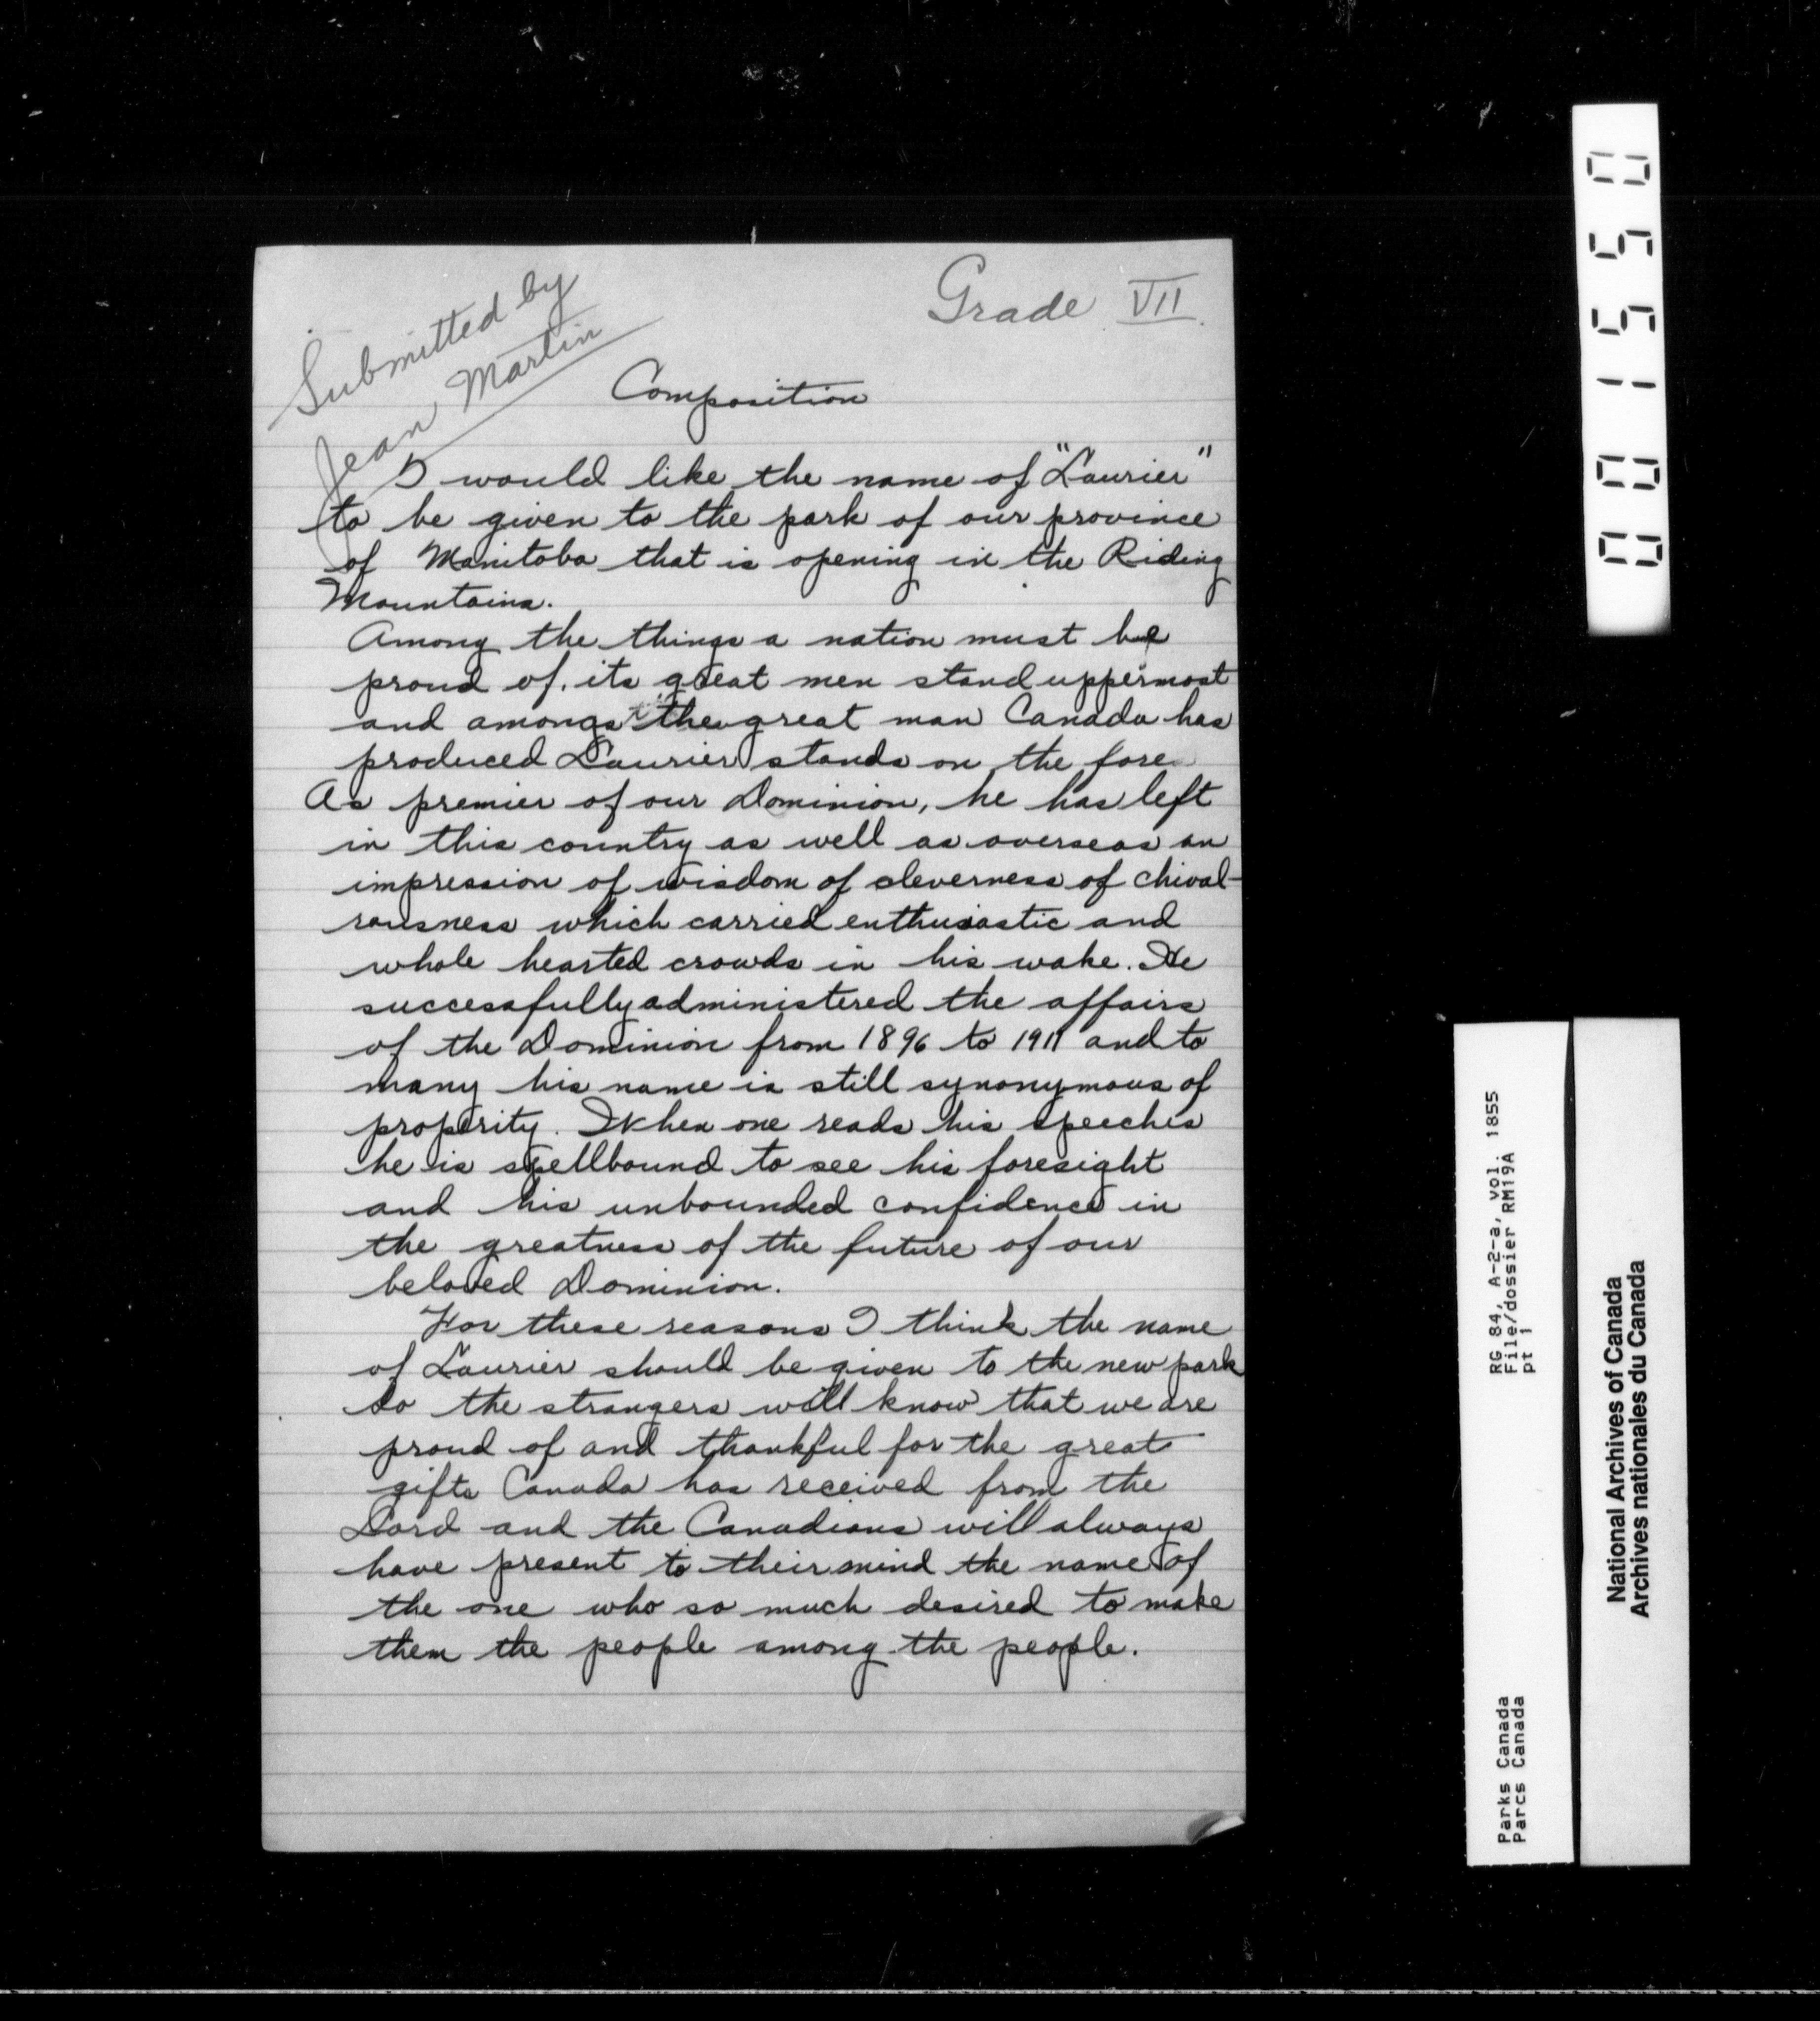 Submitted by
Jean Martin
Grade VII
Composition
I would like the name of "Laurier"
to be given to the park of our province
of Manitoba that is opening in the Riding
Mountains.
Among the things a nation must be
proud of, its great men stand uppermost
and amongs the great man Canada has
produced Laurier stands on the fore
As premier of our Dominion, he has left
in this country as well as overseas an
impression of wisdom of cleverness of chival-
rousness which carried enthusiastic and
whole hearted crowds in his wake. He
successfully administered the affairs
of the Dominion from 1896 to 1911 and to
many his name is still synonymous of
properity. When one reads his speeches
he is spellbound to see his foresight
and his unbounded confidence in
the greatness of the future of our
beloved Dominion.
For these reasons I think the name
of Laurier should be given to the new park
so the strangers will know that we are
proud of and thankful for the great
gifts Canada has received from the
Lord and the Canadians will always
have present to their mind the name of
the one who so much desired to make
them the people among the people.
001550
RG 84, A-2-a, vol. 1855
File/dossier RM19A
pt 1
Parks Canada
Parcs Canada
National Archives of Canada
Archives nationales du Canada